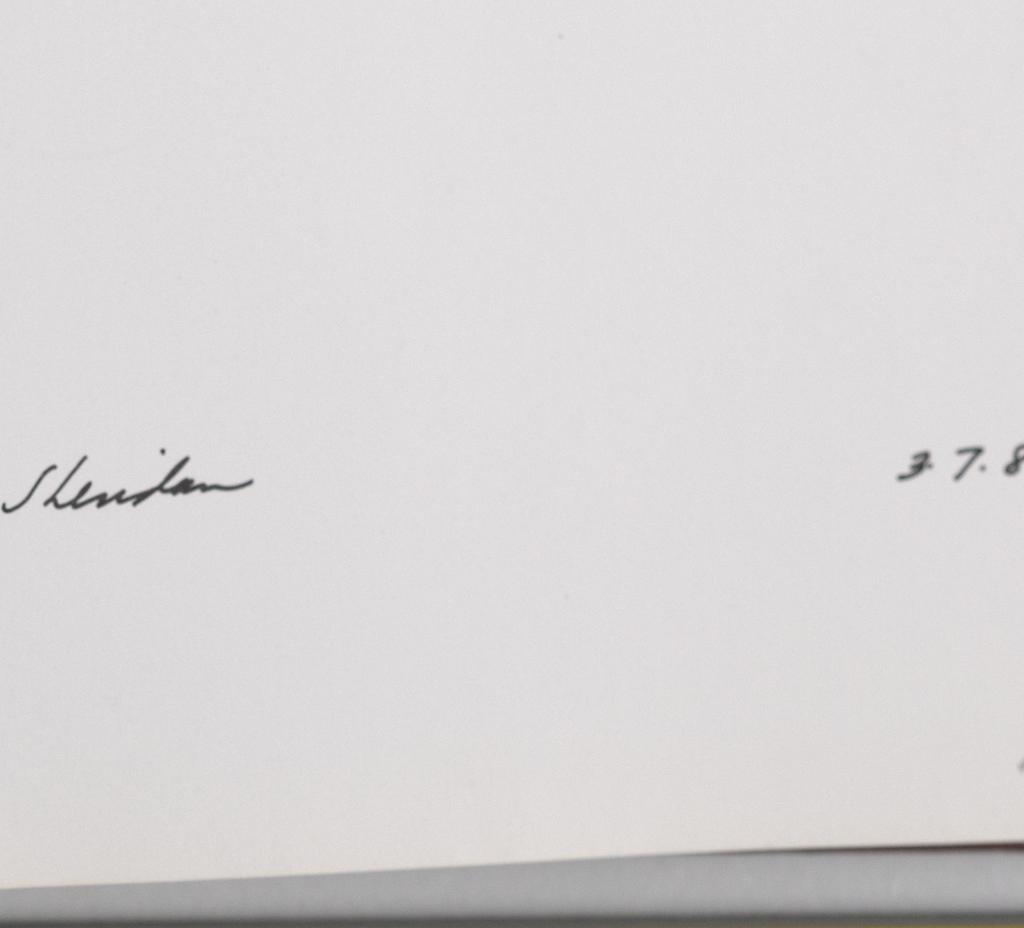 Sheridan 3.7.8